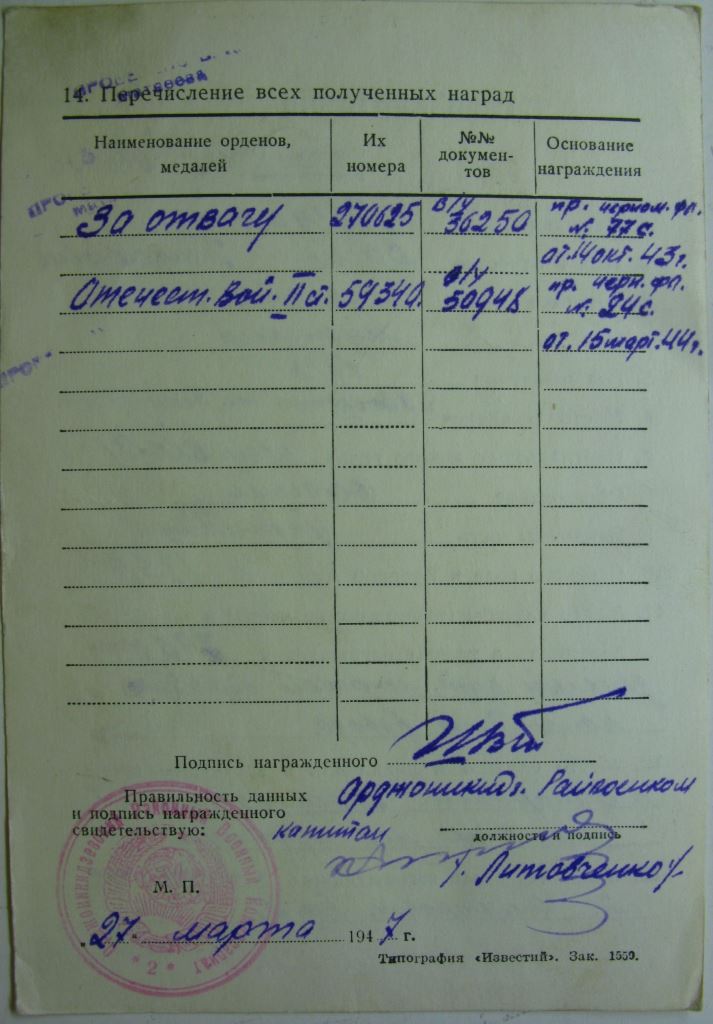 14. Перечисление всех полученных наград
Наименование орденов, медалей
Их номера
№№ докумен-тов
Основание награждения
За отвагу 270625 в/у 36250 пр. черном. фл. № 77с.
от 14 окт. 43 г.
Отечест. Вой. II ст. 59340. в/у 50948 пр. черн. фл. № 24с.
от. 15 март. 44 г.
Подпись награжденного
Правильность данных Орджоникидз. Райвоенком
и подпись награжденного
свидетельствую: капитан
должность и подпись
М. П. Литовченко
"27" марта 1947 г.
2
Типография «Известий». Зак. 1559.